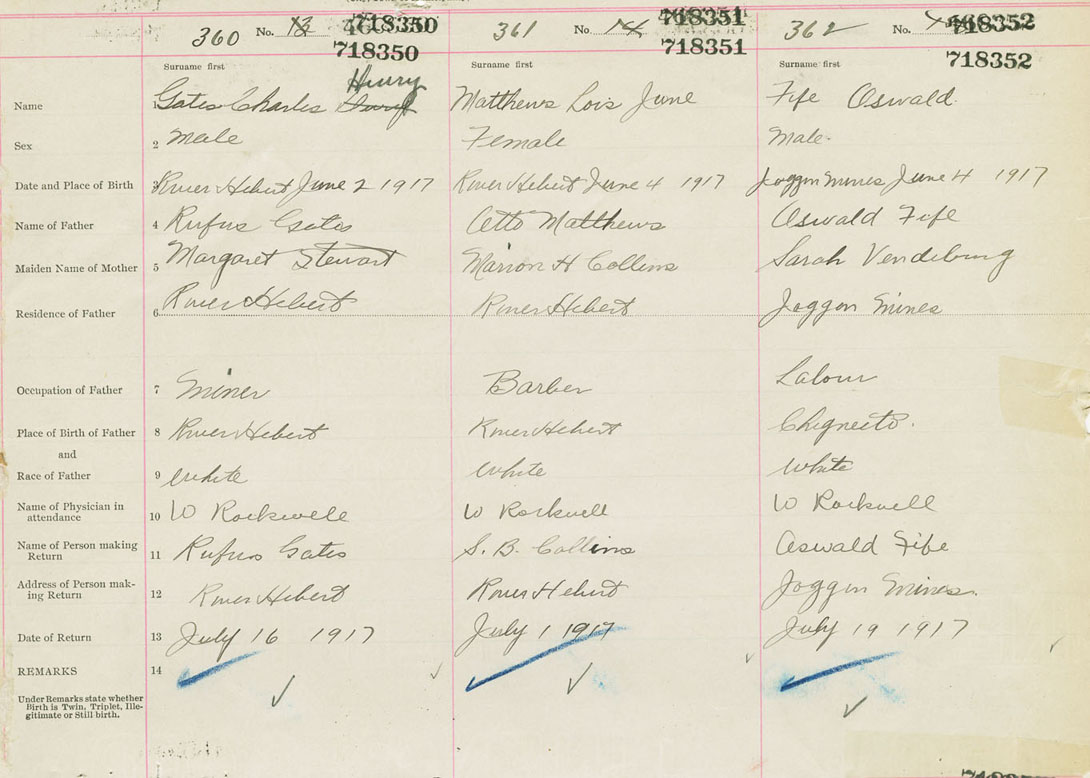 360 No. 13 718350
718350
361 No. 14 718351
718351
362 No. 718352
718352
Surname first Surname first Surname first
Henry
Name 1 Gates Charles Matthews Lois June Fife Oswald.
Sex 2 Male Female Male.
Date and Place of Birth 3 River Hebert June 2 1917 River Hebert June 4 1917 Joggin Mines June 4 1917
Name of Father 4 Rufus Gates Otto Matthews Oswald Fife
Maiden Name of Mother 5 Margaret Stewart Marion H Collins Sarah Vendeburg
Residence of Father 6 River Hebert River Hebert Joggin Mines
Occupation of Father 7 Miner Barber Labour
Place of Birth of Father 8 River Hebert River Hebert Chignecto.
and
Race of Father 9 White White White
Name of Physician in
attendance 10 W Rockwell W Rockwell W Rockwell
Name of Person making
Return 11 Rufus Gates S. B. Collins Oswald Fife
Address of Person mak-
ing Return 12 River Hebert River Hebert Joggin Mines.
Date of Return 13 July 16 1917 July 1 1917 July 19 1917
REMARKS 14
Under Remarks state whether
Birth is Twin, Triplet, Ille-
gitimate or Still birth.